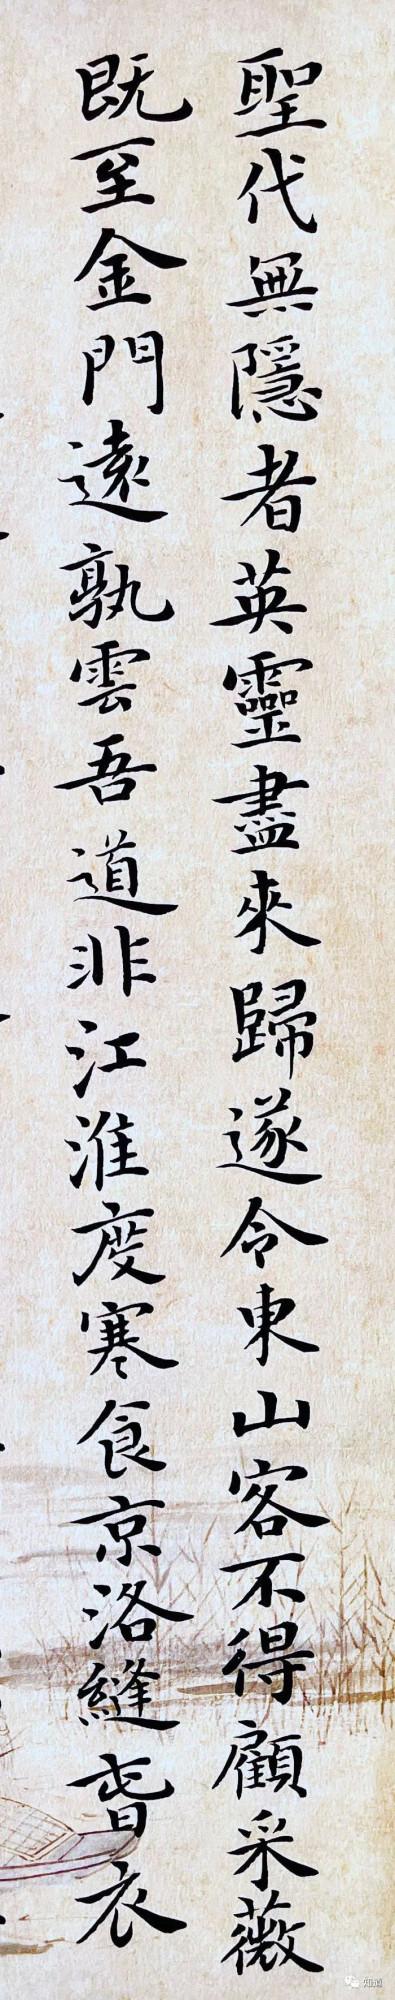 聖代無隱者英靈盡來歸遂令東山客不得顧采薇
既至金門遠孰雲吾道非江淮度寒食京洛縫旾衣
知道